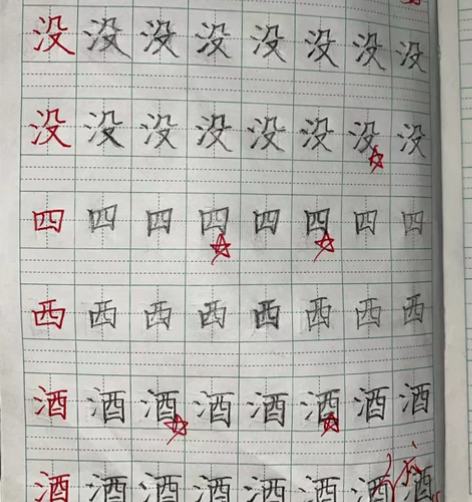 没没没没没没没没
没没没没没没没没
四四四四四四四四
西西西西西西西西
酒酒酒酒酒酒酒酒
酒酒酒酒酒酒酒酒